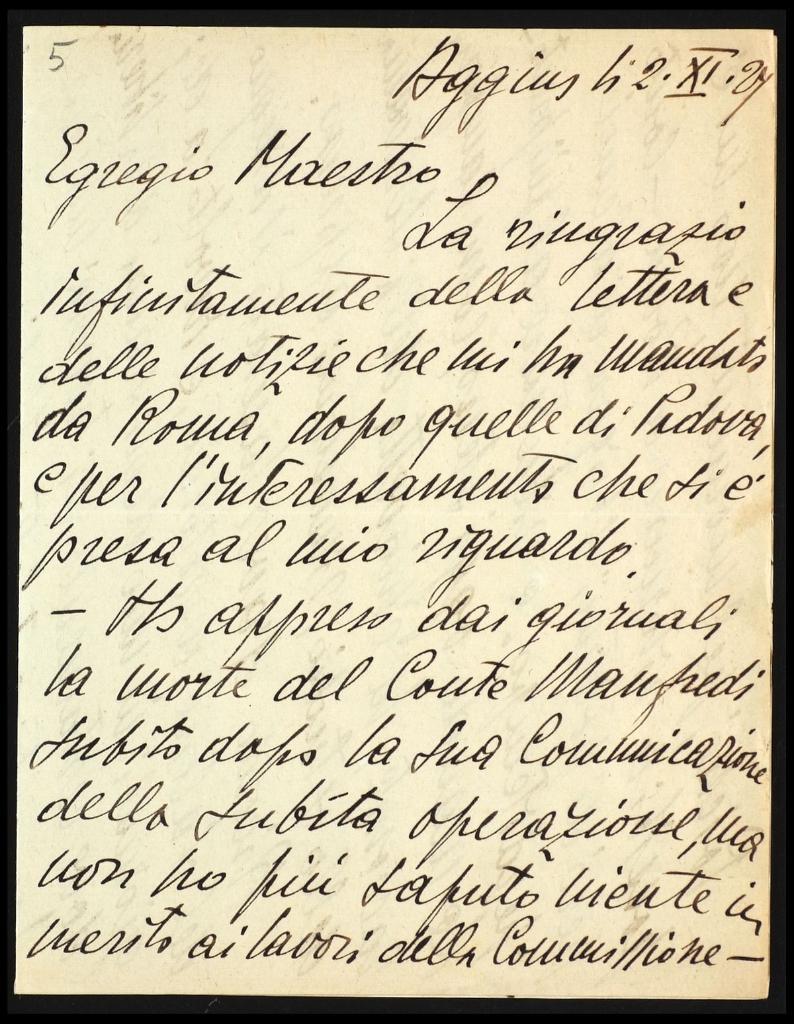 5
Aggius li 2. XI. 27
Egregio Maestro
La ringrazio
infinitamente della lettera e
delle notizie che mi ha mandato
da Roma, dopo quelle di Padova,
e per l'interessamento che si è
presa al mio riguardo.
- Ho appreso dai giornali
la morte del Conte Manfredi
subito dopo la sua Comunicazione
della subita operazione, ma
non ho più saputo niente in
merito ai lavori della Commissione -